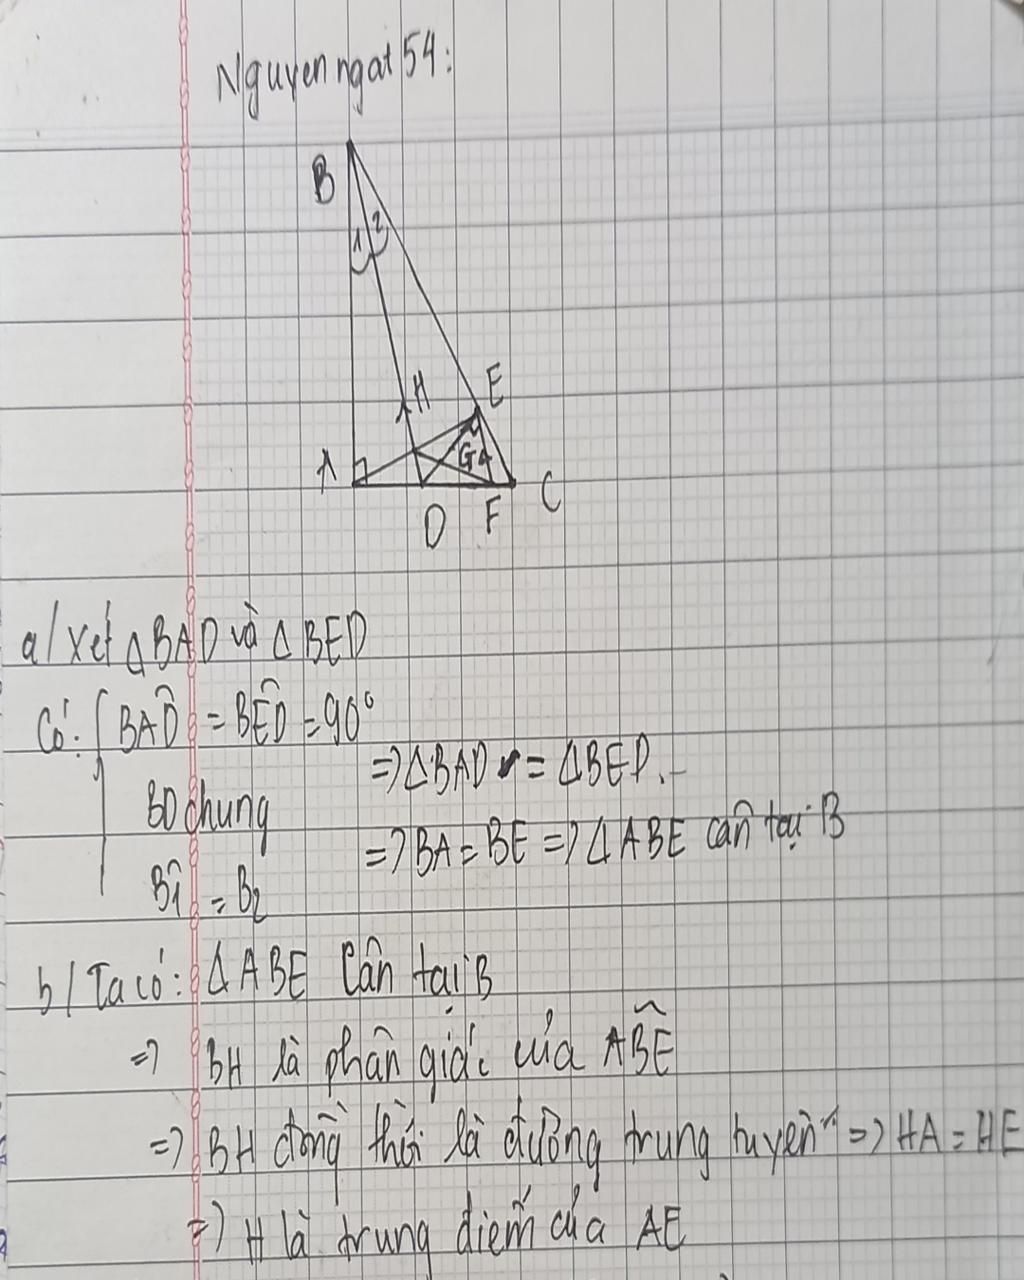 Nguyenngat54:
B
1 2
H
E
A
G
D
F
C
a/ Xét ΔBAD và ΔBED
Có: { BAD̂ = BÊD = 90°
=> ΔBAD = ΔBED.
BD chung
=> BA = BE => ΔABE cân tại B
B̂1 = B2
b/ Ta có: ΔABE Cân tại B
=> BH là phân giác của AB̂E
=> BH đồng thời là đường trung tuyến => HA = HE
=> H là trung điểm của AE